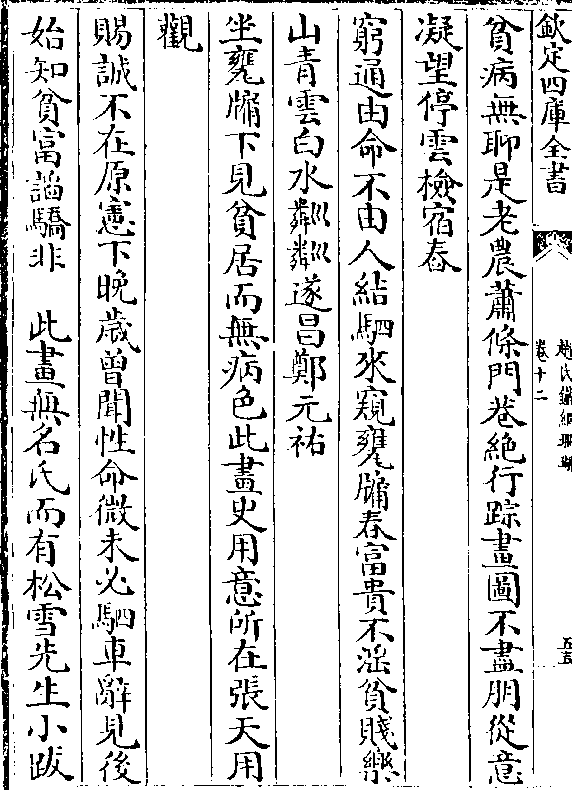 欽定四庫全書
趙氏鐵網珊瑚
卷十二
五
貧病無聊是老農蕭條門巷絶行踪畫圖不盡朋從意
凝望停雲檢宿舂
窮通由命不由人結駟來窺甕牖春富貴不滛貧賤樂
山青雲白水粼粼遂昌鄭元祐
坐甕牖下見貧居而無病色此畫史用意所在張天用
觀
賜誠不在原憲下晚歳曾聞性命微未必駟車辭見後
始知貧富謟驕非　此畫無名氏而有松雪先生小跋